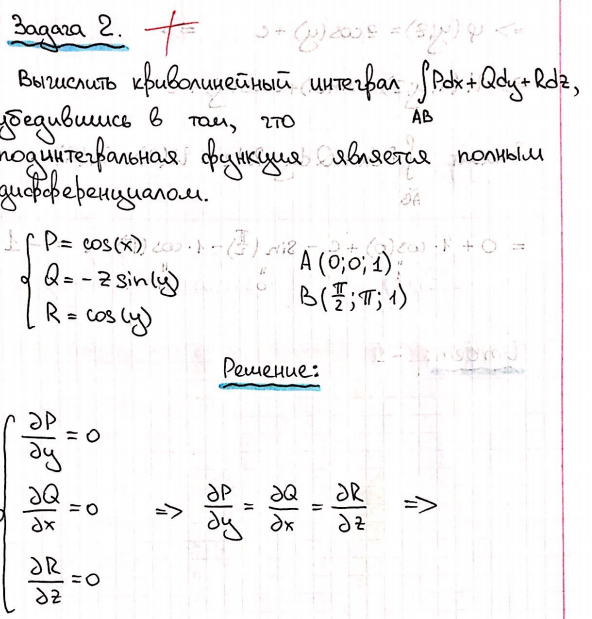 Задача 2.
Вычислить криволинейный интеграл ∫_{AB} Pdx + Qdy + Rdz,
убедившись в том, что
подинтегральная функция является полным
дифференциалом.
P = cos(x)
Q = -z sin(y)
R = cos(y)
A (0; 0; 1)
B (π/2; π; 1)
Решение:
∂P/∂y = 0
∂Q/∂x = 0 => ∂P/∂y = ∂Q/∂x = ∂R/∂z =>
∂R/∂z = 0